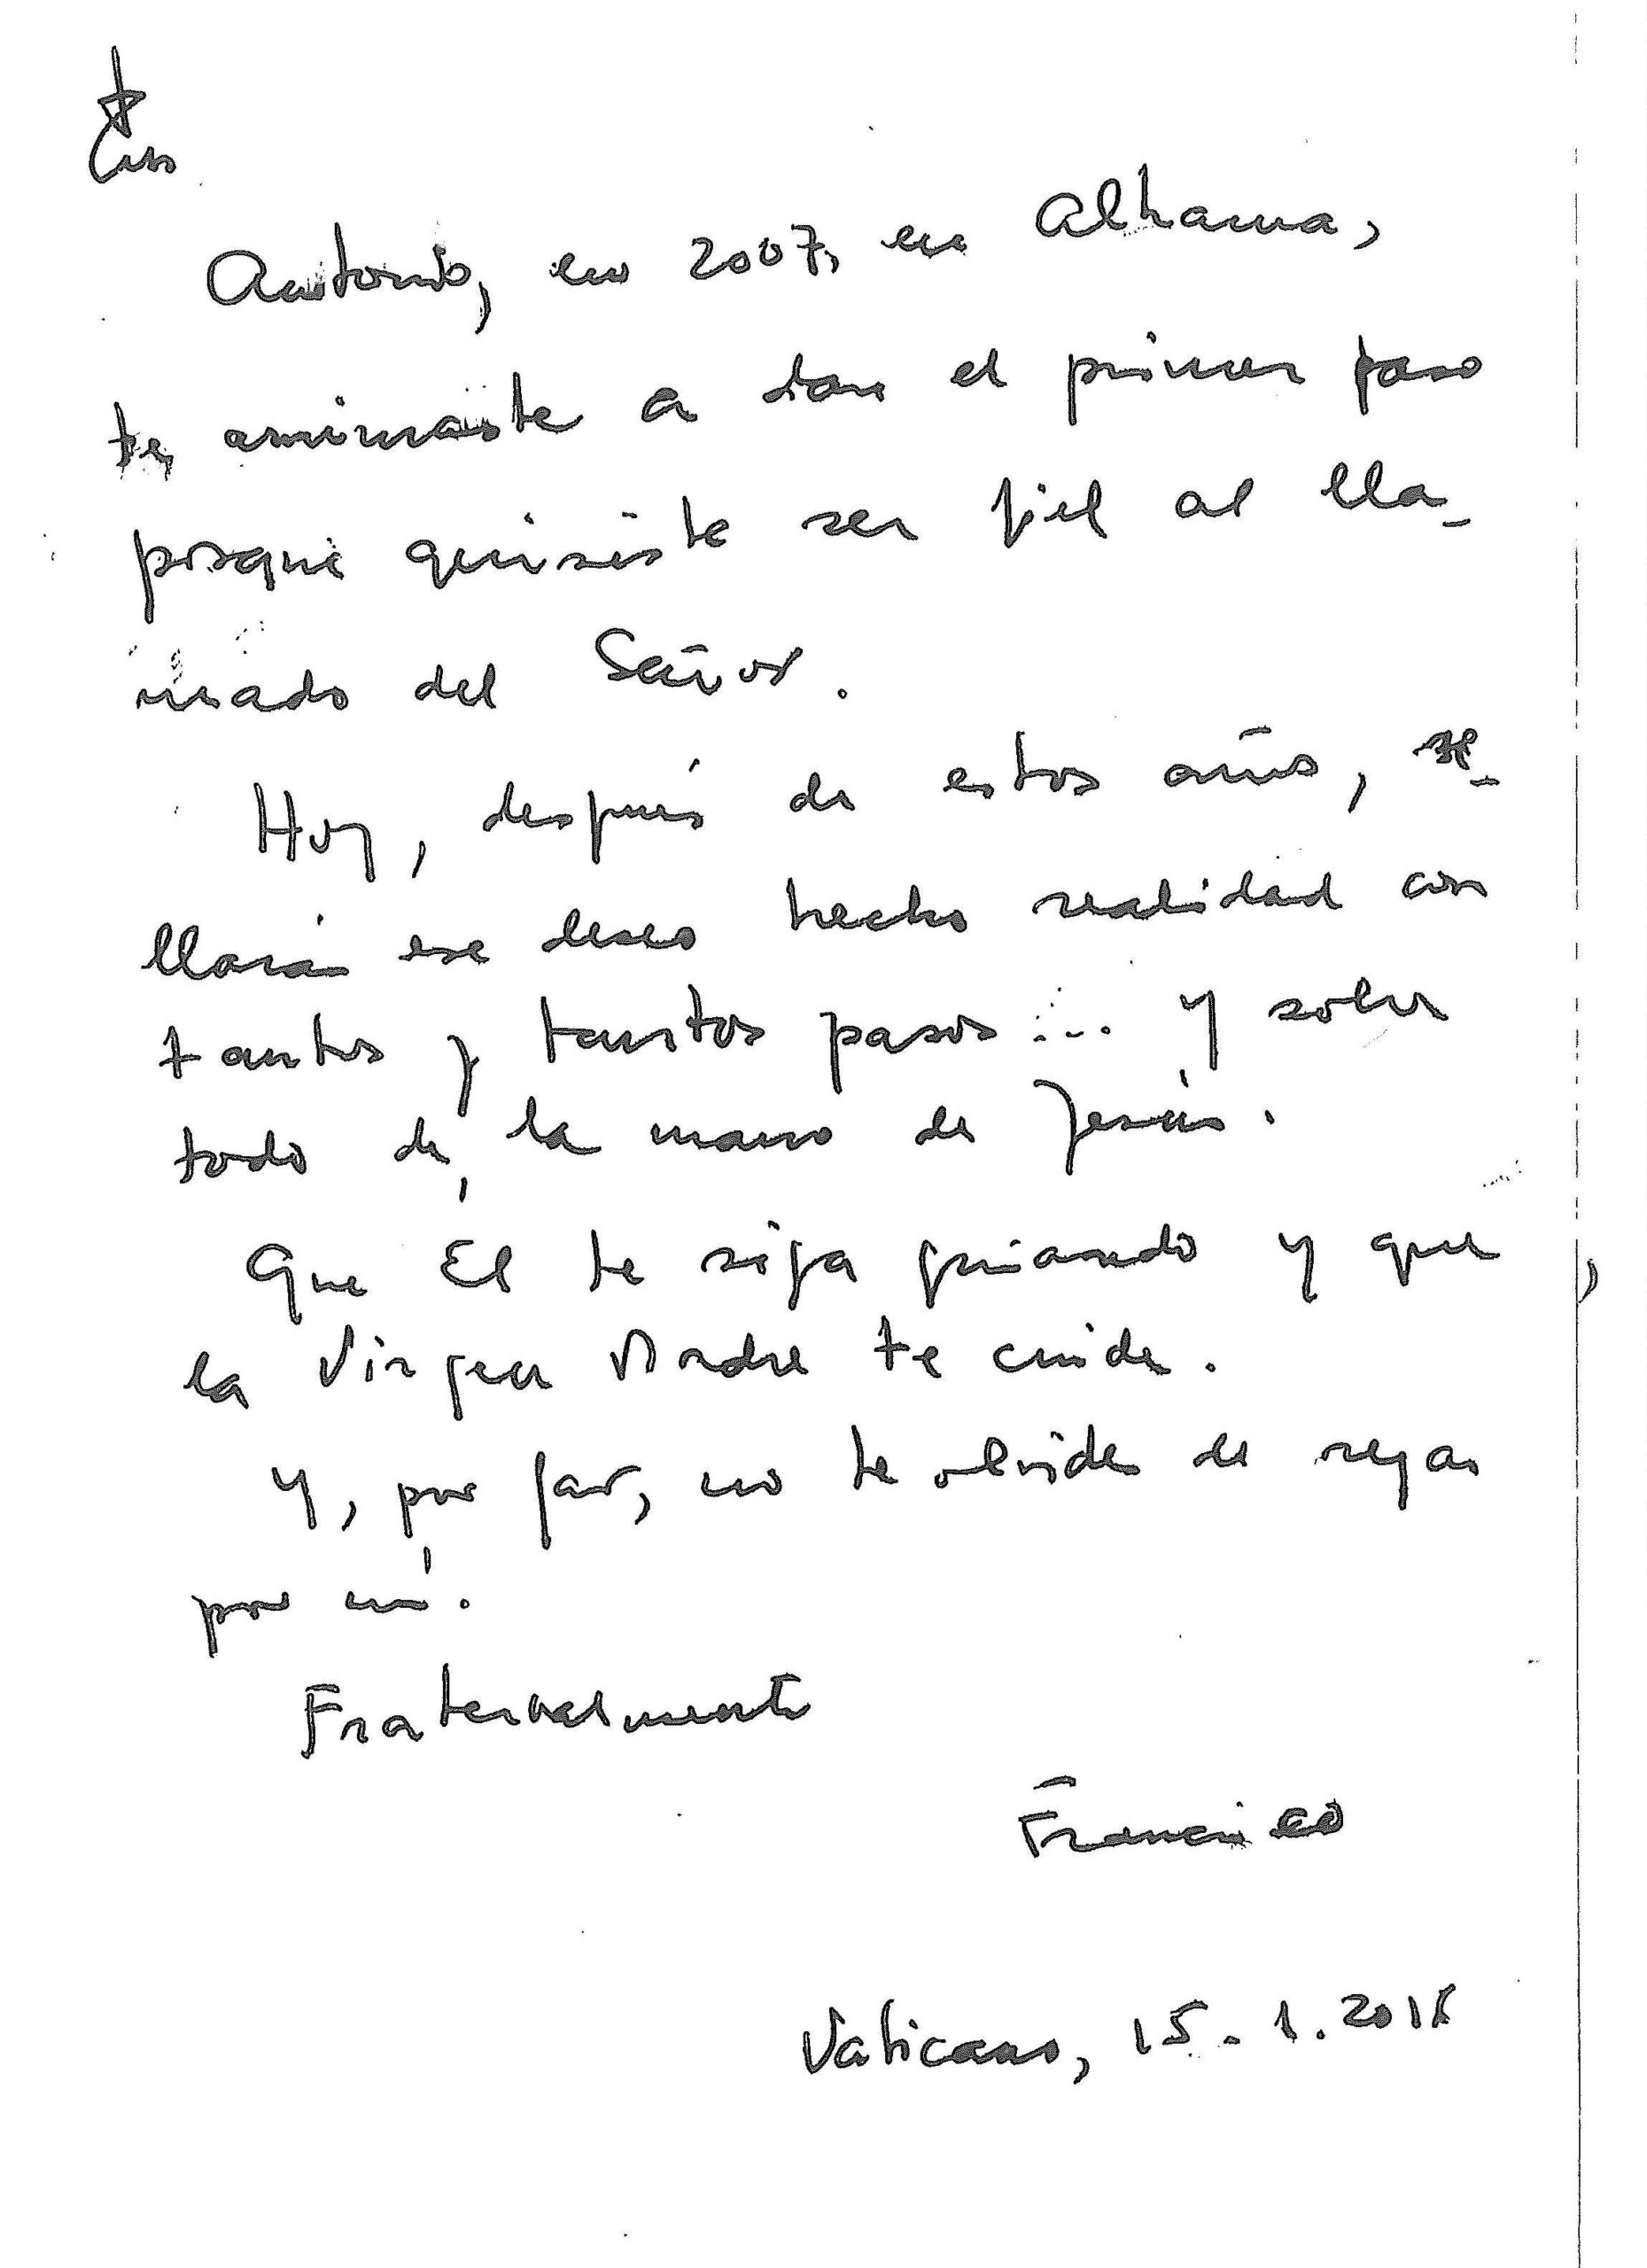 Antonio, en 2007, en Alhama,
te animaste a dar el primer paso
porque quisiste ser fiel al lla-
mado del Señor.
Hoy, después de estos años, se-
llarán ese deseo hecho realidad con
tantos y tantos pasos... y sobre
todo de la mano de Jesús.
Que Él te siga guiando y que
la Virgen Madre te cuide.
Y, por fav, no te olvides de rezar
por mí.
Fraternalmente
Francisco
Vaticano, 15-1.2018